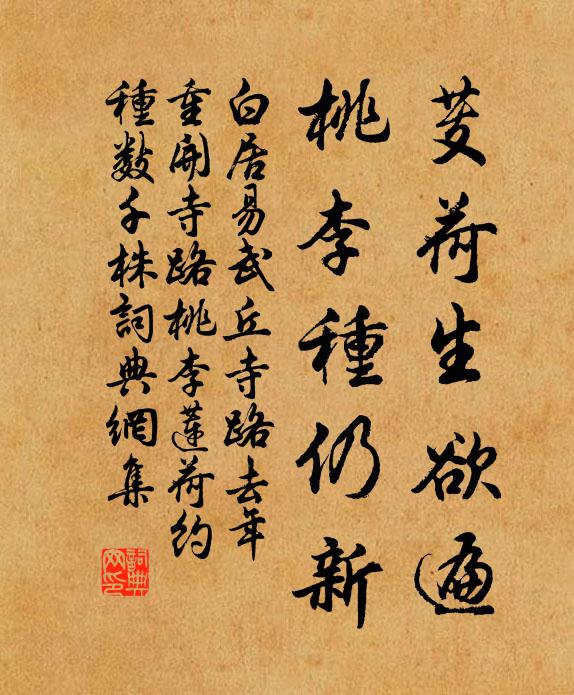 芰荷生欲遍
桃李種仍新
白居易武丘寺路去年
重開寺路桃李蓮荷約
種數千株詞典網集
詞典
网印